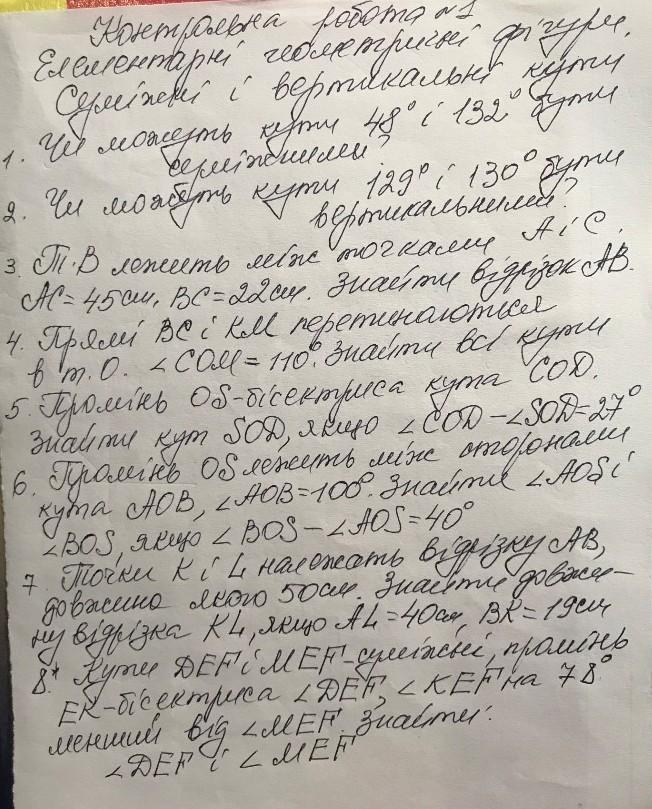 Контрольна робота №1
Елементарні геометричні фігури.
Суміжні і вертикальні кути
1. Чи можуть кути 48° і 132° бути
суміжними?
2. Чи можуть кути 129° і 130° бути
вертикальними?
3. Т. В лежить між точками А і С.
АС = 45см, ВС = 22см. Знайти відрізок АВ.
4. Прямі ВС і КМ перетинаються
в т. О. ∠СОМ = 110°. Знайти всі кути
5. Промінь OS-бісектриса кута COD.
Знайти кут SOD, якщо ∠COD - ∠SOD = 27°
6. Промінь OS лежить між сторонами
кута АОВ, ∠АОВ = 100°. Знайти ∠AOS і
∠BOS, якщо ∠BOS - ∠AOS = 40°
7. Точки К і L належать відрізку АВ,
довжина якого 50см. Знайти довжи-
ну відрізка KL, якщо AL = 40см, ВК = 19см
8.* Кути DEF і MEF - суміжні, промінь
ЕК-бісектриса ∠DEF, ∠KEF на 78°
менший від ∠MEF. Знайти:
∠DEF і ∠MEF